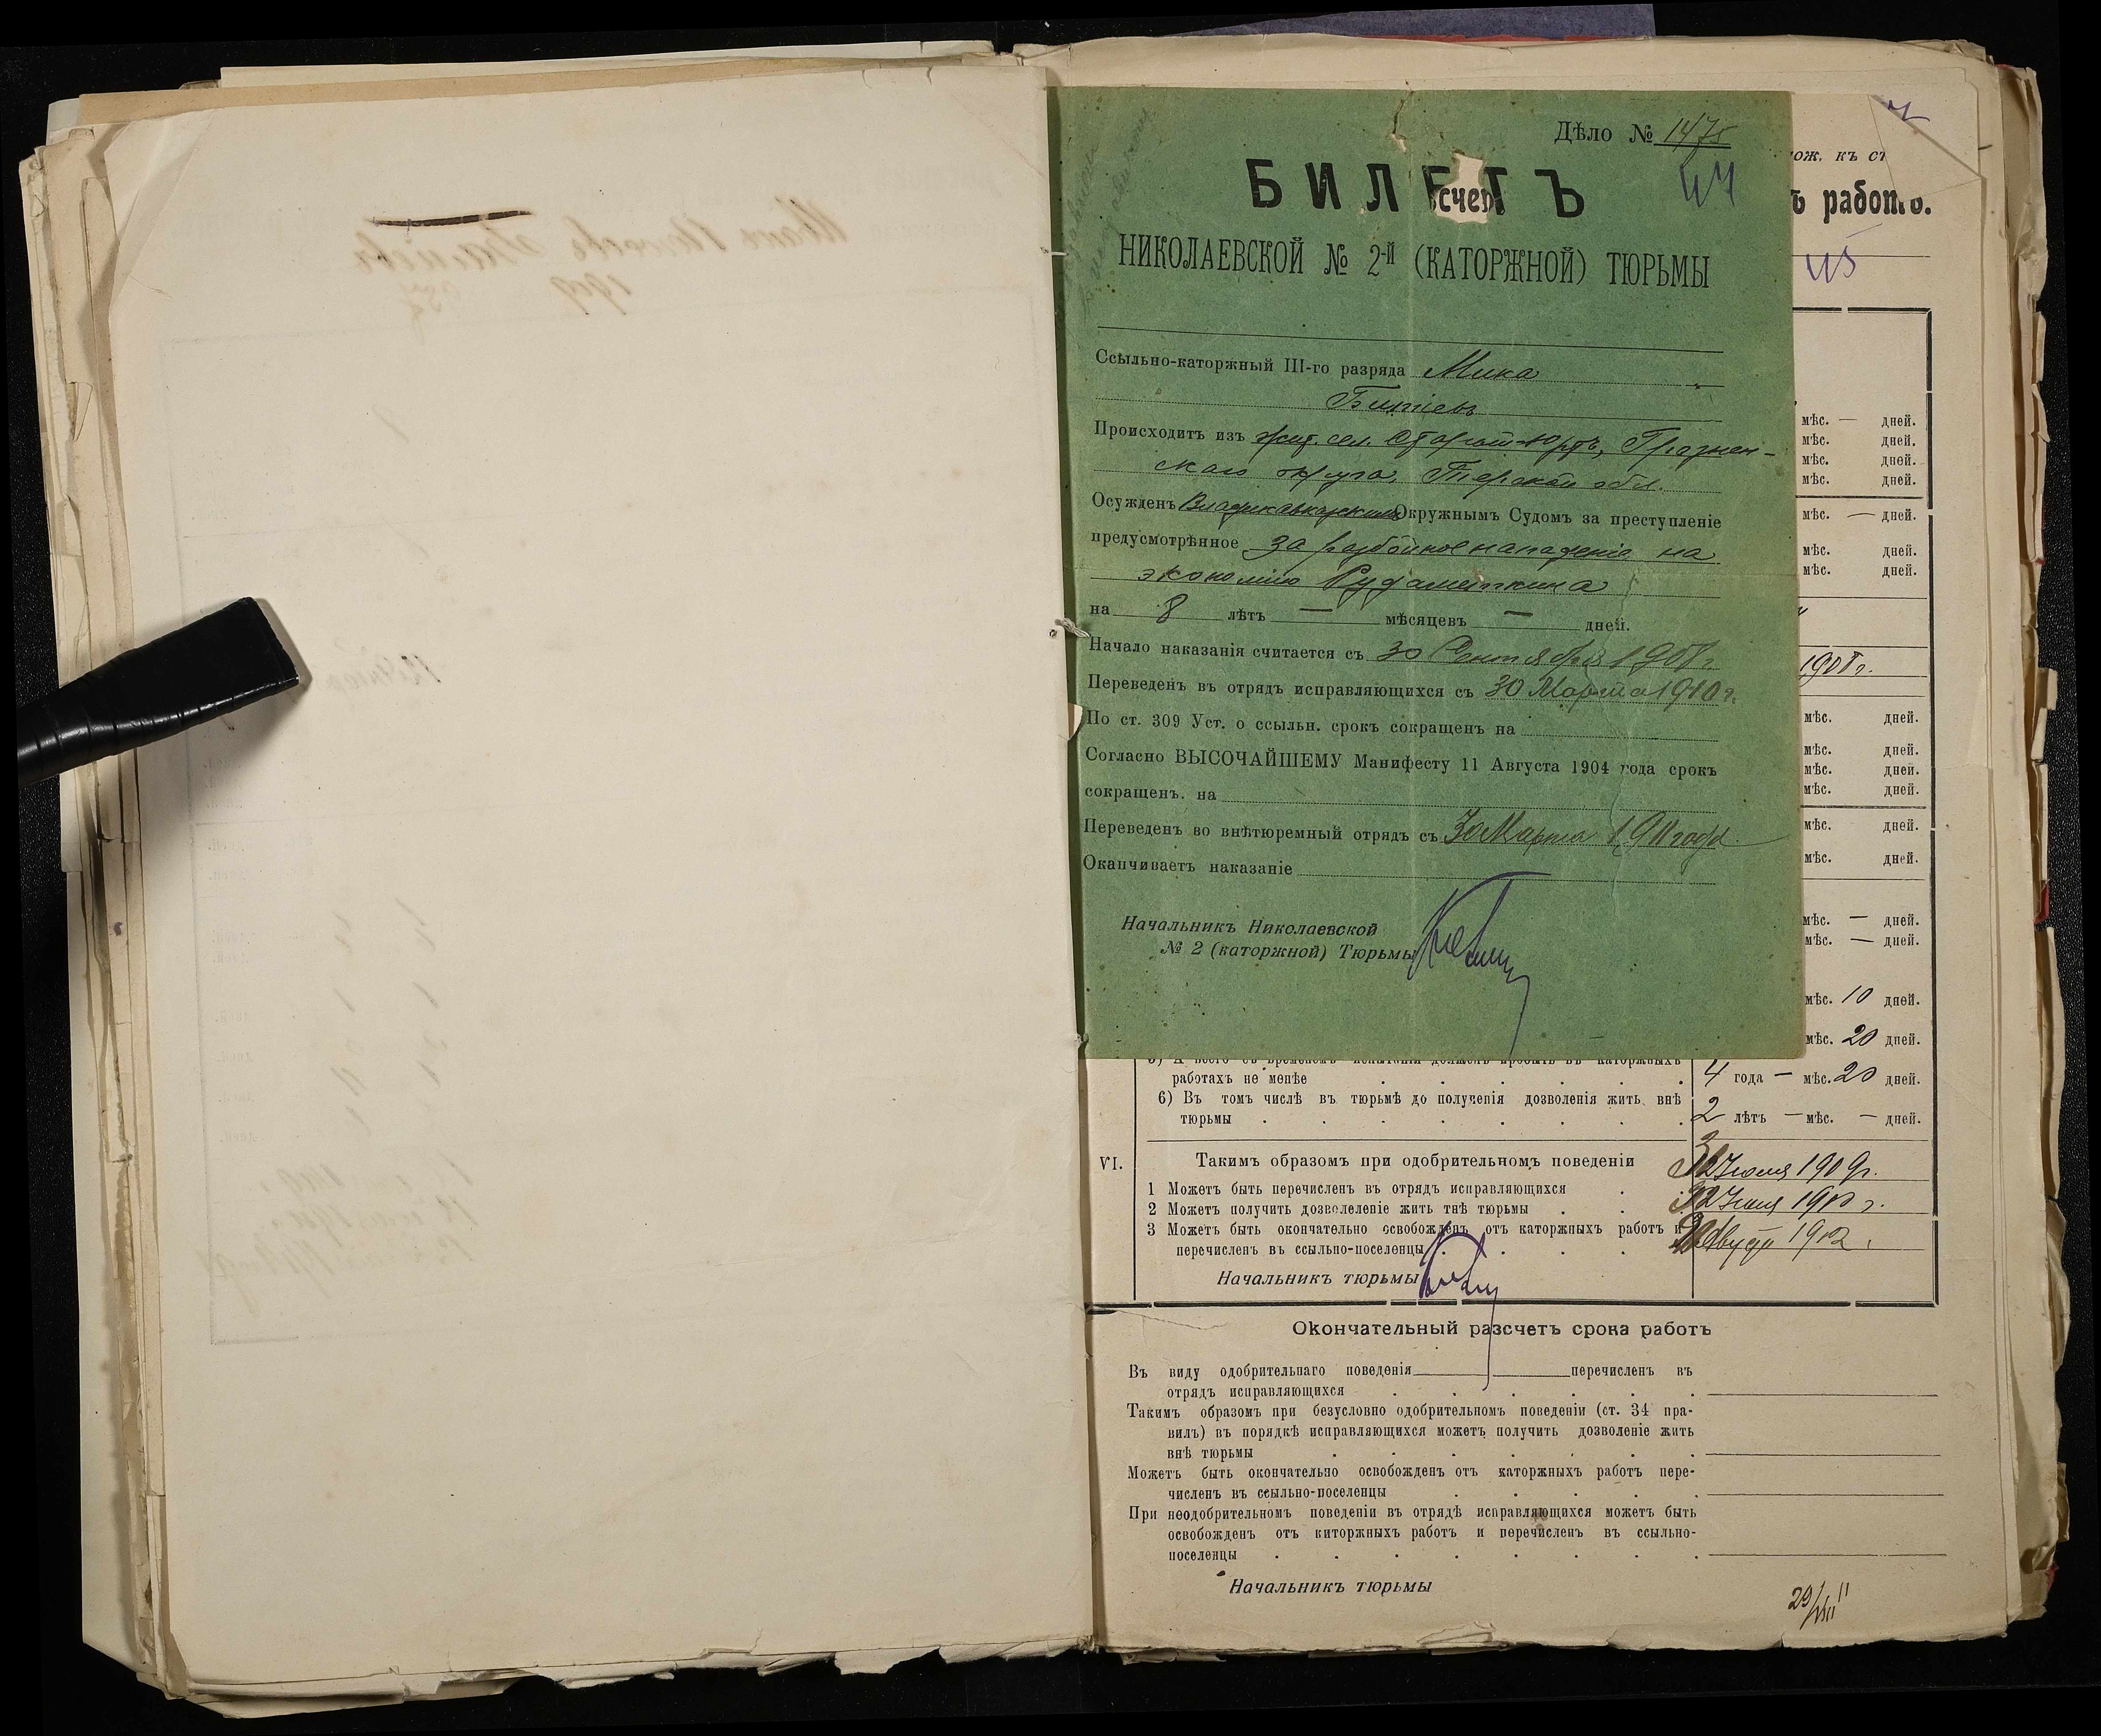 Дѣло № 1475
44
БИЛЕТЪ
счет
НИКОЛАЕВСКОЙ № 2-й (КАТОРЖНОЙ) ТЮРЬМЫ
Ссыльно-каторжный III-го разряда Мика
Битіевъ
Происходитъ изъ жит. сел. Старый-Юртъ, Грознен-
скаго округа, Терской обл.
Осужденъ Владикавказскимъ Окружнымъ Судомъ за преступленіе
предусмотрѣнное за разбойное нападеніе на
экономію Рудометкина
на 8 лѣтъ — мѣсяцевъ — дней.
Начало наказанія считается съ 30 Сентября 1908 г.
Переведенъ въ отрядъ исправляющихся съ 30 Марта 1910 г.
По ст. 309 Уст. о ссыльн. срокъ сокращенъ на
Согласно ВЫСОЧАЙШЕМУ Манифесту 11 Августа 1904 года срокъ
сокращенъ. на
Переведенъ во внѣтюремный отрядъ съ 30 Марта 1911 года
Оканчиваетъ наказаніе
Начальникъ Николаевской
№ 2 (каторжной) Тюрьмы
ож. къ ст
ъ работъ.
45
мѣс. — дней.
мѣс. дней.
мѣс. дней.
мѣс. дней.
мѣс. — дней.
мѣс. дней.
мѣс. дней.
мѣс. дней.
мѣс. дней.
мѣс. дней.
мѣс. дней.
мѣс. дней.
мѣс. дней.
мѣс. — дней.
мѣс. — дней.
мѣс. 10 дней.
мѣс. 20 дней.
работахъ не менѣе 4 года — мѣс. 20 дней.
6) Въ томъ числѣ въ тюрьмѣ до полученія дозволенія жить внѣ
тюрьмы 2 лѣтъ — мѣс. — дней.
VI. Такимъ образомъ при одобрительномъ поведеніи
1 Можетъ быть перечисленъ въ отрядъ исправляющихся
2 Можетъ получить дозволеленіе жить тнѣ тюрьмы
3 Можетъ быть окончательно освобожденъ отъ каторжныхъ работъ и
перечисленъ въ ссыльно-поселенцы
Начальникъ тюрьмы
Окончательный разсчетъ срока работъ
Въ виду одобрительнаго поведенія перечисленъ въ
отрядъ исправляющихся
Такимъ образомъ при безусловно одобрительномъ поведеніи (ст. 34 пра-
вилъ) въ порядкѣ исправляющихся можетъ получить дозволеніе жить
внѣ тюрьмы
Можетъ быть окончательно освобожденъ отъ каторжныхъ работъ пере-
численъ въ ссыльно-поселенцы
При неодобрительномъ поведеніи въ отрядѣ исправляющихся можетъ быть
освобожденъ отъ киторжныхъ работъ и перечисленъ въ ссыльно-
поселенцы
Начальникъ тюрьмы